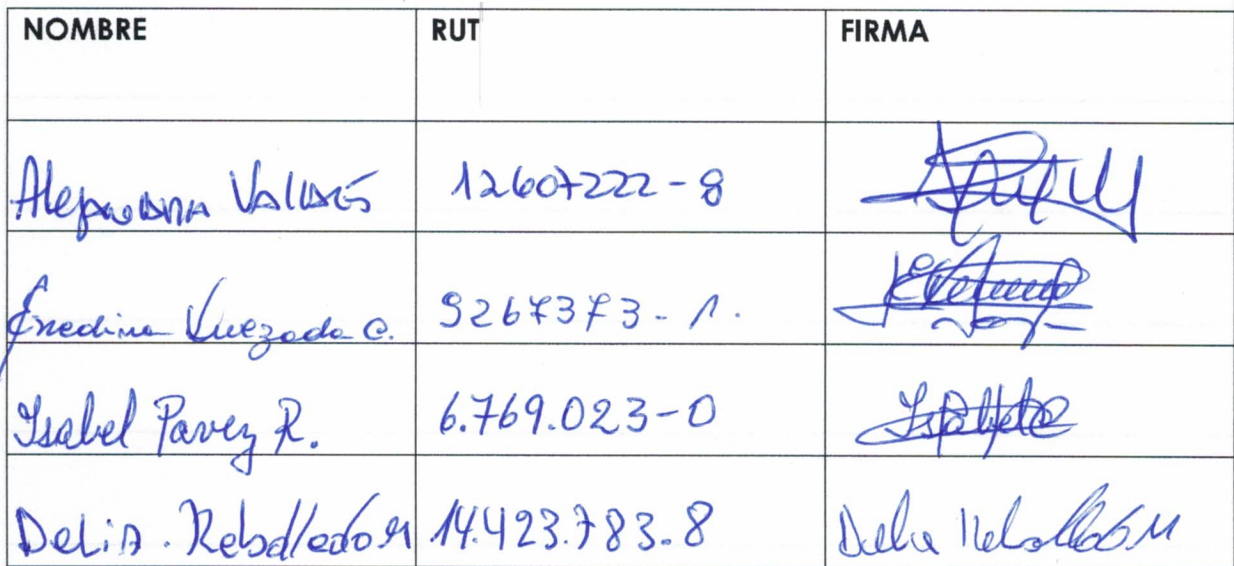 NOMBRE RUT FIRMA
Alejandra Valdés 12607222-8
Enedina Quezada C. 9267373-1.
Isabel Pavez R. 6.769.023-0
Delia. Rebolledo M 14.423.783.8 Delia Rebolledo M